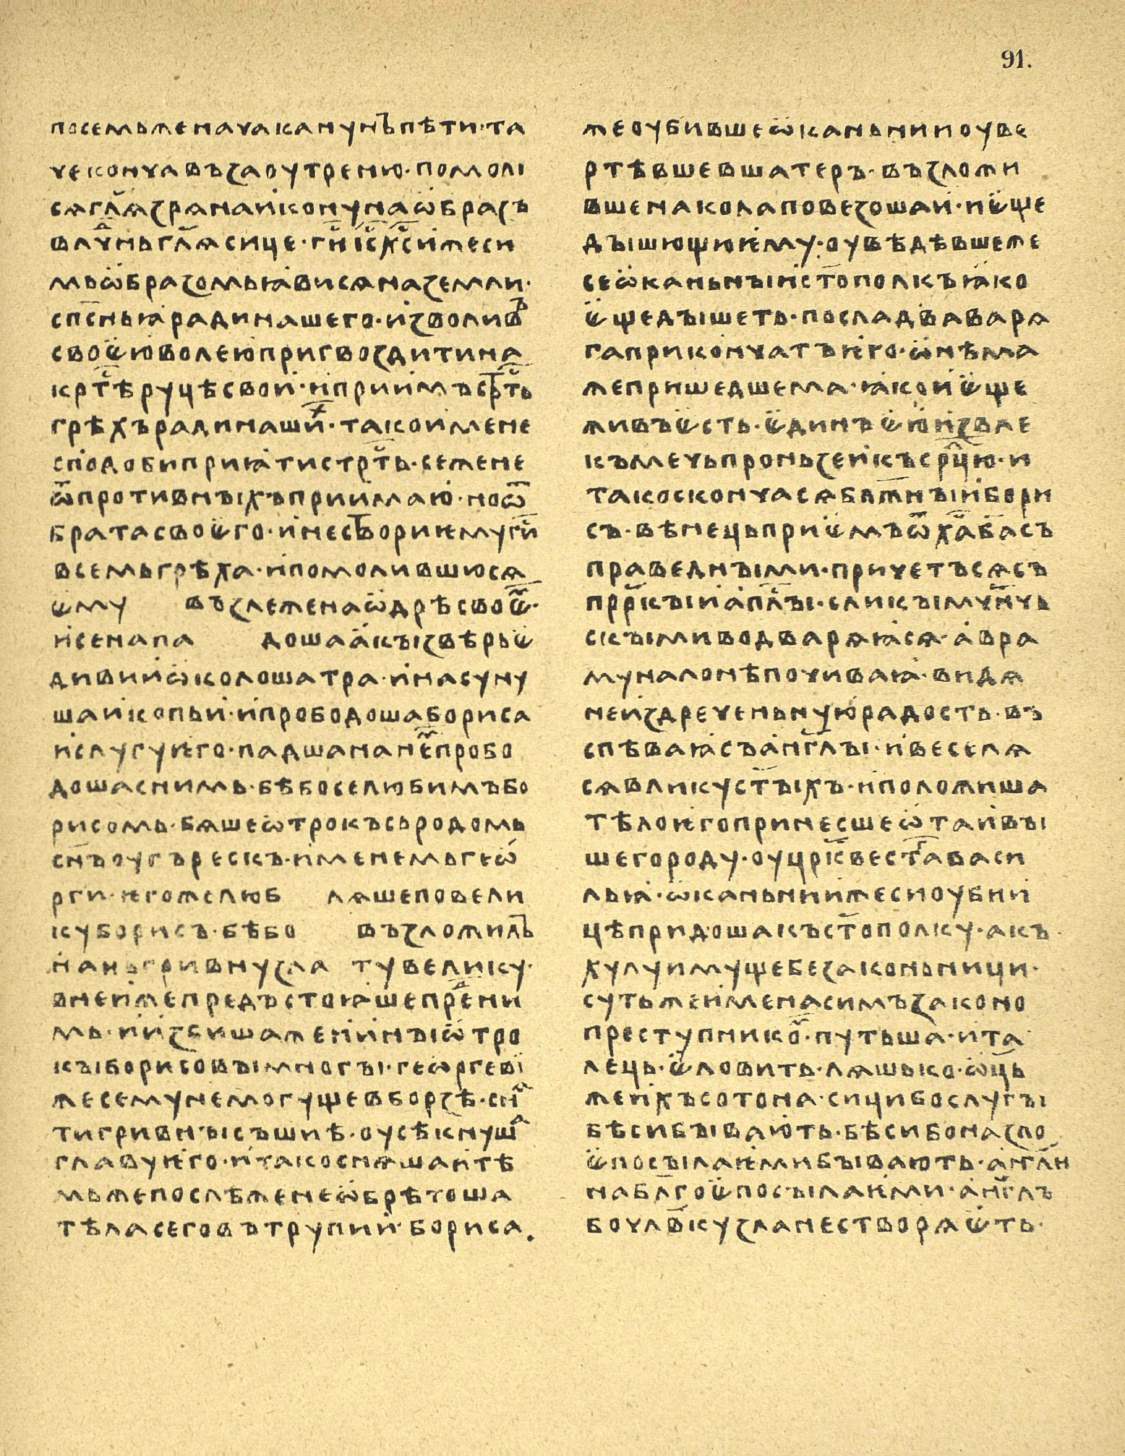 91.
посемьженачаканунъпѣти·та
чекончавъзаоутреню·помоли
сѧгл҃ѧзрѧнаиконунаѡбразъ
влчн҃ьгл҃ѧсице·гн҃иіс҃ех҃сижеси
мьѡбразомьꙗвисѧназемли·
сп҃сньꙗрадинашего·изволивъ
своеюволеюпригвоздитина
крс҃тѣруцѣсвои·иприимъстр҃ть
грѣхърадинаших·такоимене
сподобиприꙗтистрс҃ть·сежене
ѿпротивныхъприимаю·ноѿ
братасвоего·инестворииемугс҃и
всемьгрѣха·ипомолившюсѧ
ему възлеженаѡдрѣсвоем·
исенапа дошаакызвѣрье
дивииѡколошатра·инасуну
шаикопьи·ипрободошабориса
ислугуиего·падшананемпробо
дошаснимь·бѣбоселюбимъбо
рисомь·бѧшеѡтрокъсьродомь
сн҃ъоугърескъ·именемьгеѡ
рги·иегожелюб лѧшеповели
куборисъ·бѣбо възложилъ
наньгривнузла тувелику·
внеижепредъстоꙗшепреди
мь·иизбишажеииныѡтро
кыборисовымногы·геѡргеви
жесемунемогущевборзѣ·сн҃ѧ
тигривнысъшиѣ·оусѣкнуша
главуиего·итакоснѧшаитѣ
мьжепослѣженеѡбрѣтоша
тѣласеговътрупии·бориса.
жеоубившеѡканьниіоуве
ртѣвшевшатеръ·възложи
вшенаколаповезошаи·иеще
дышющюиему·оувѣдѣвшеже
сеѡканьныист҃ополкъꙗко
ещедышеть·посладваварѧ
гаприкончатъиего·ѡнѣма
жепришедшема·ꙗкоиеще
живъесть·единъеюизвле
къмечьпроньзеикъсрд҃цю·и
такоскончасѧбл҃жныибори
съ·вѣнецьприемъѿх҃аба҃съ
праведными·причетъсѧсъ
прр҃кыиапл҃ы·сликымучнчь
скымиводварѧꙗсѧ·авра
муналонѣпочиваꙗ·видѧ
неиздреченьнуюрадость·въ
спѣваꙗсъанг҃лы·ивеселѧ
сѧвликуст҃ыхъ·иположиша
тѣлоиегопринесшеѡтаивы
шегороду·оуцр҃квест҃агаваси
льꙗ·ѡканьниижесиоубии
цѣпридошакъст҃ополку·акъ
хулуимущебезаконьници·
сутьжеименасимъзаконо
преступником·путьша·ита
лець·еловить·лѧшько·ѡц҃ь
жеихъсотона·сицибослугы
бѣсибывають·бѣсибоназло
епосылаемибывають·анг҃ли
наблг҃оепосылаеми·анг҃лъ
бочлв҃кузланестворѧеть·